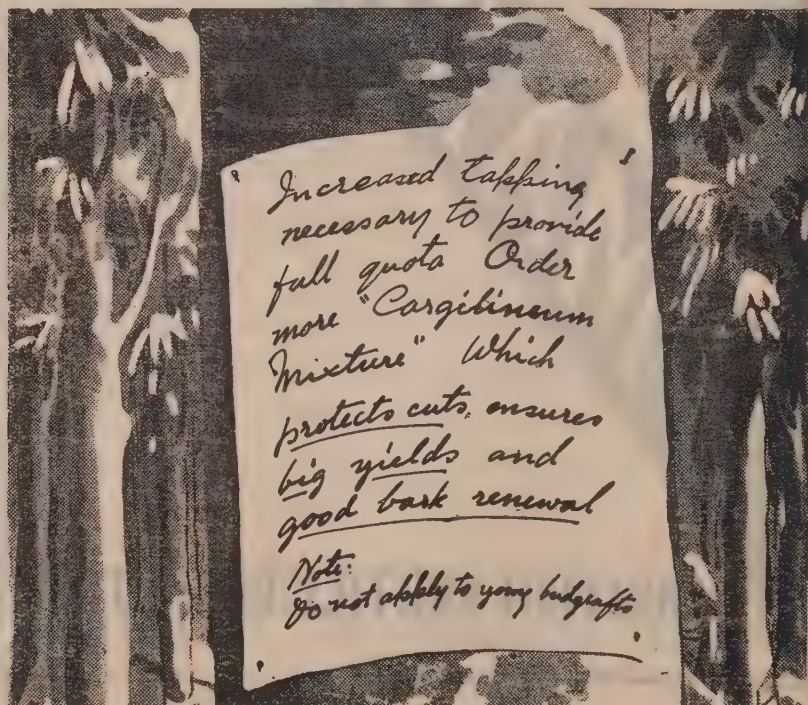 Increased tapping
necessary to provide
full quota Order
more "Cargilineum
Mixture" Which
protects cuts, ensures
big yields and
good bark renewal
Note:
Do not apply to young budgrafts